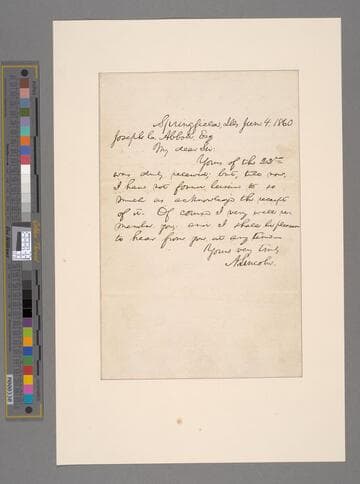 Springfield, Ills, June 4. 1860
Joseph C. Abbott, Esq
My dear Sir:
Yours of the 22nd
was duly received; but, till now,
I have not found leisure to so
much as acknowledge the receipt
of it. Of course I very well re-
member you; and I shall be pleased
to hear from you at any time.
Yours very truly
A. Lincoln.